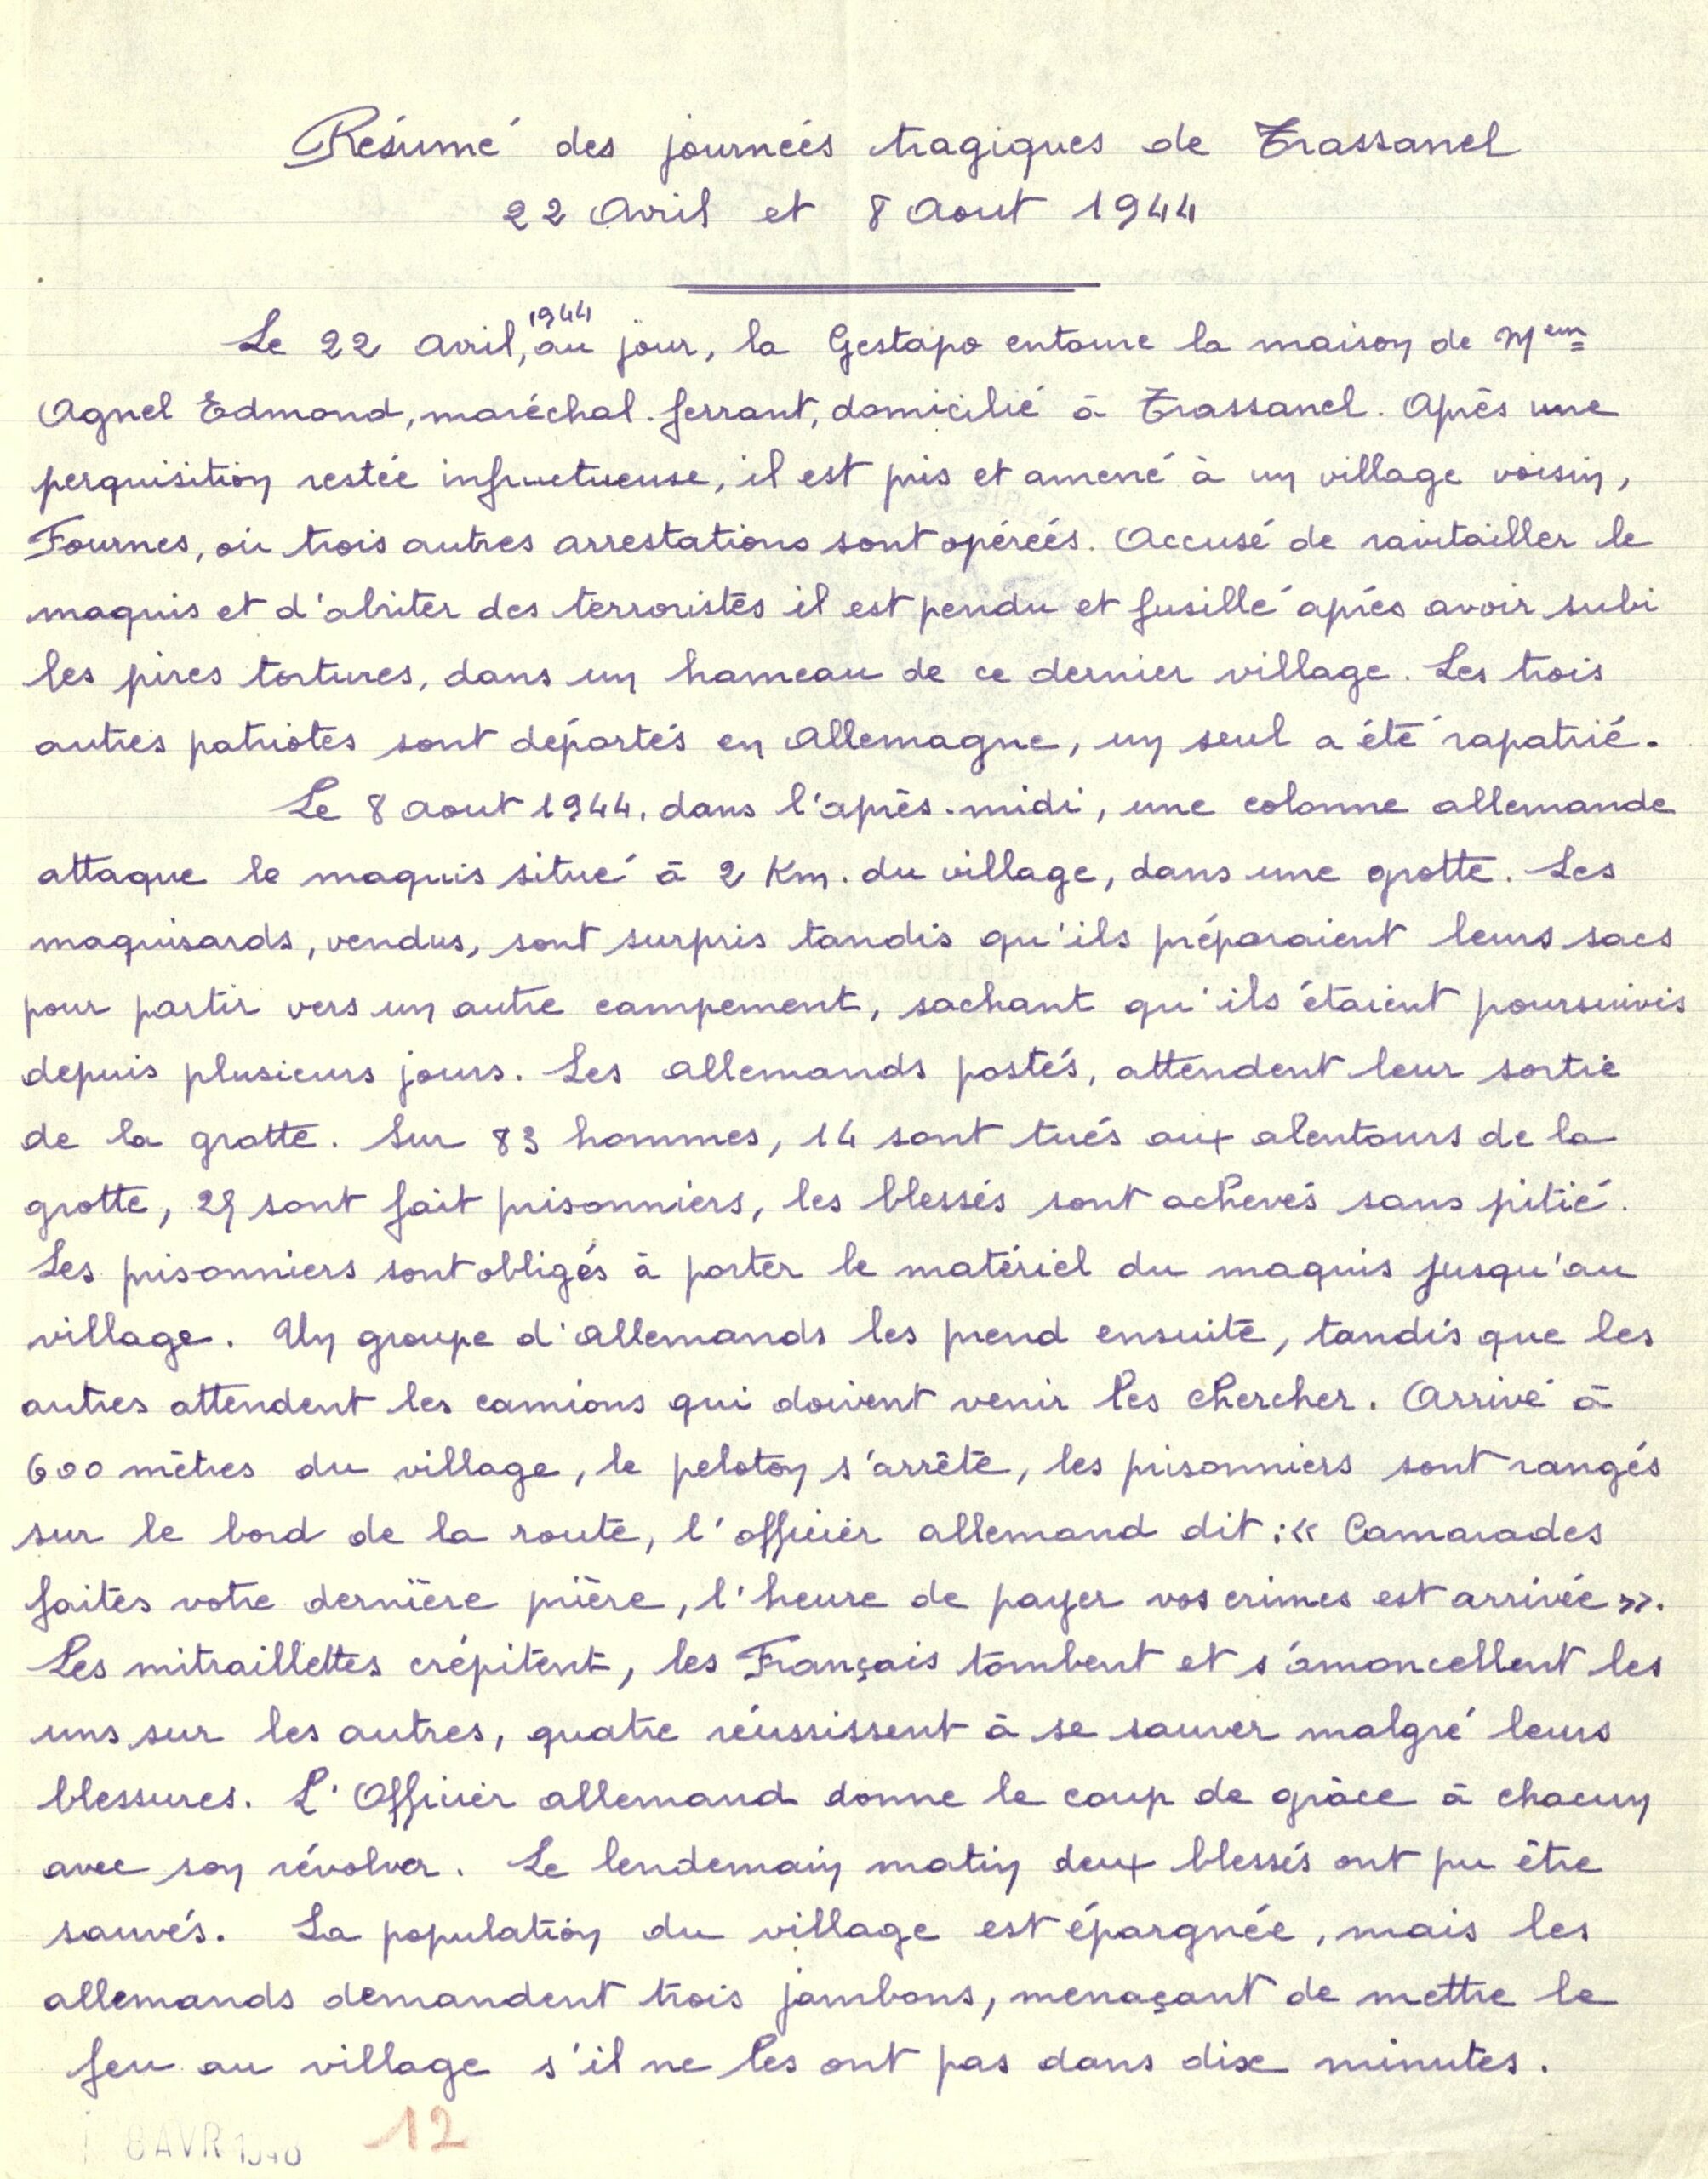 Résumé des journées tragiques de Trassanel
22 Avril et 8 Aout 1944
Le 22 Avril, 1944 au jour, la Gestapo entoure la maison de
Agnel Edmond, maréchal-ferrant, domicilié à Trassanel. Après une
perquisition restée infructueuse, il est pris et amené à un village voisin,
Fournes, où trois autres arrestations sont opérées. Accusé de ravitailler le
maquis et d'abriter des terroristes il est pendu et fusillé après avoir subi
les pires tortures, dans un hameau de ce dernier village. Les trois
autres patriotes sont déportés en Allemagne, un seul a été rapatrié.
Le 8 Aout 1944, dans l'après-midi, une colonne allemande
attaque le maquis situé à 2 Km. du village, dans une grotte. Les
maquisards, vendus, sont surpris tandis qu'ils préparaient leurs sacs
pour partir vers un autre campement, sachant qu'ils étaient poursuivis
depuis plusieurs jours. Les allemands postés, attendent leur sortie
de la grotte. Sur 83 hommes, 14 sont tués aux alentours de la
grotte, 29 sont fait prisonniers, les blessés sont achevés sans pitié.
Les prisonniers sont obligés à porter le matériel du maquis jusqu'au
village. Un groupe d'allemands les prend ensuite, tandis que les
autres attendent les camions qui doivent venir les chercher. Arrivé à
600 mètres du village, le peloton s'arrête, les prisonniers sont rangés
sur le bord de la route, l'officier allemand dit : « Camarades
faites votre dernière prière, l'heure de payer vos crimes est arrivée ».
Les mitraillettes crépitent, les Français tombent et s'amoncellent les
uns sur les autres, quatre réussissent à se sauver malgré leurs
blessures. L'Officier allemand donne le coup de grâce à chacun
avec son révolver. Le lendemain matin deux blessés ont pu être
sauvés. La population du village est épargnée, mais les
allemands demandent trois jambons, menaçant de mettre le
feu au village s'il ne les ont pas dans dix minutes.
8 AVR 12